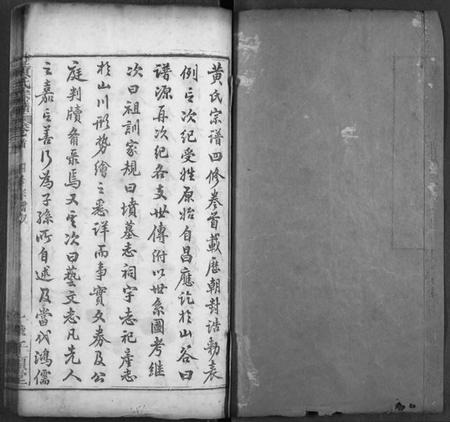 黄氏宗譜四修卷首載歷朝封誥勅表
例言次紀受姓原始自昌應訖於山谷曰
譜源再次紀各支世傳附以世系圖考継
次曰祖訓家規曰墳墓志祠宇志祀產志
於山川形勢繪之悉詳而事實文券及公
庭判牘备录焉又其次曰藝文志凡先人
之嘉言善行為子孫所自述及當代鴻儒